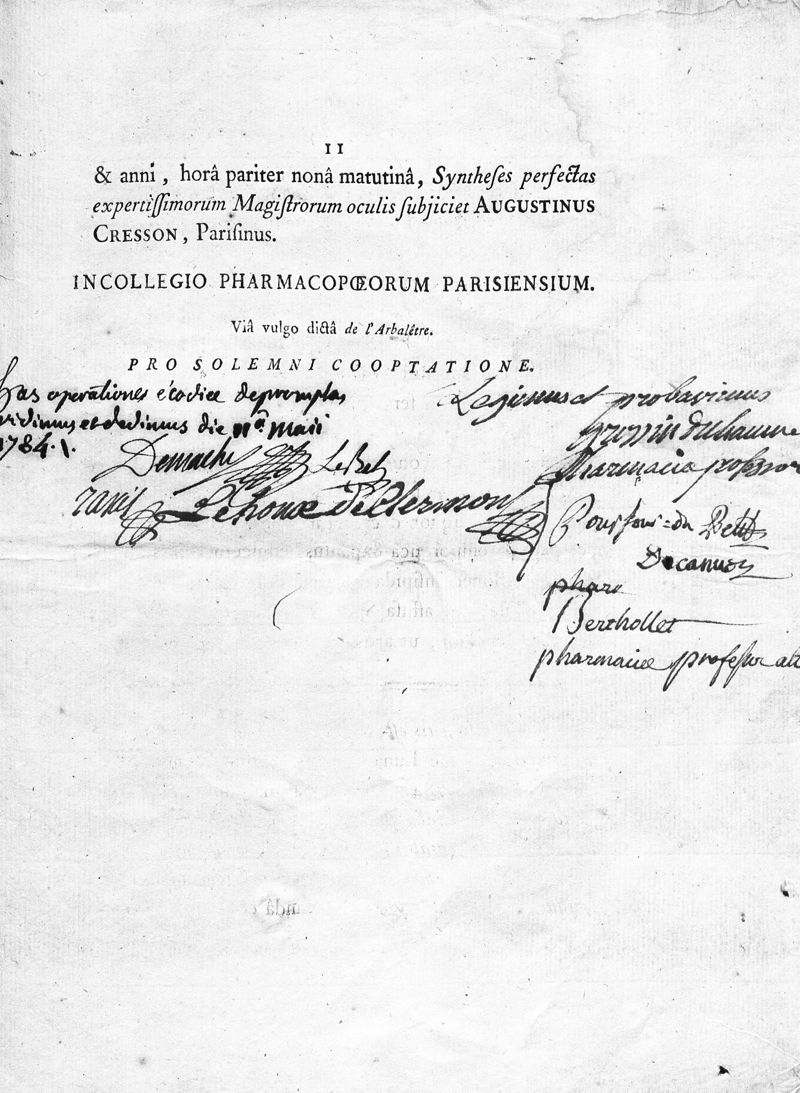 11
& anni, horâ pariter nonâ matutinâ, Syntheſes perfectas
expertiſſimorum Magiſtrorum oculis ſubjiciet AUGUSTINUS
CRESSON, Pariſinus.
IN COLLEGIO PHARMACOPŒORUM PARISIENSIUM.
Viâ vulgo dictâ de l'Arbalêtre.
PRO SOLEMNI COOPTATIONE.
has operationes é codice depromptas
vidimus et dedimus die 11ª maii
1784.
Demachy LeBel
Lehoux de Clermon
Legimus et probavimus
pharmacia professor
Pourfour du Petit
Decanus
phara
Berthollet
pharmaciae professor